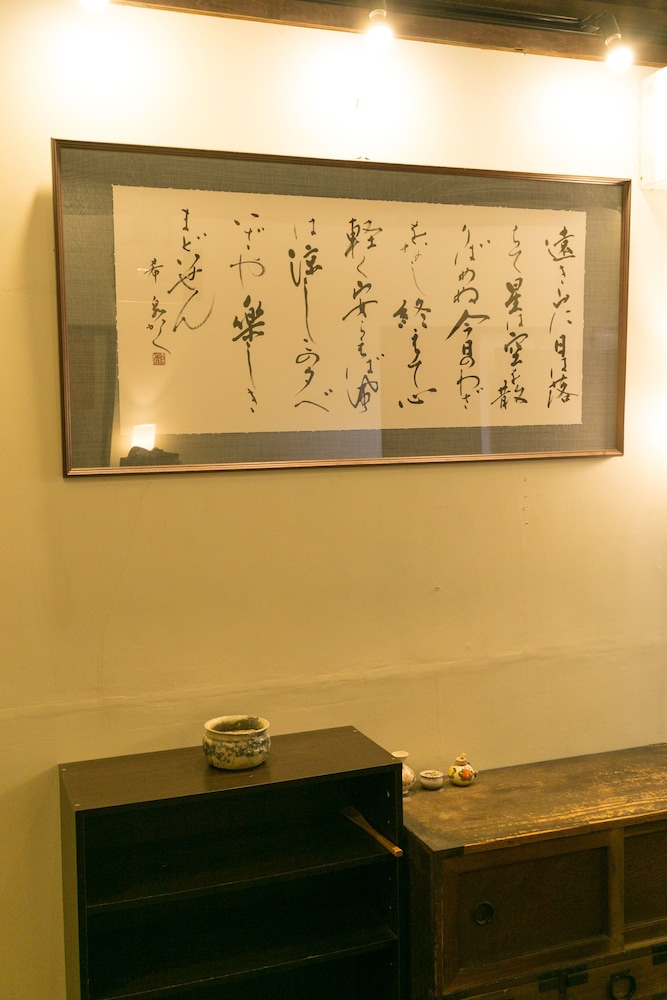 遠き山に日は落
ちて星は空を散
りばめぬ今日のわざ
をなし終えて心
軽く安らえば風
は涼しこの夕べ
いざや楽しき
まどいせん
かく